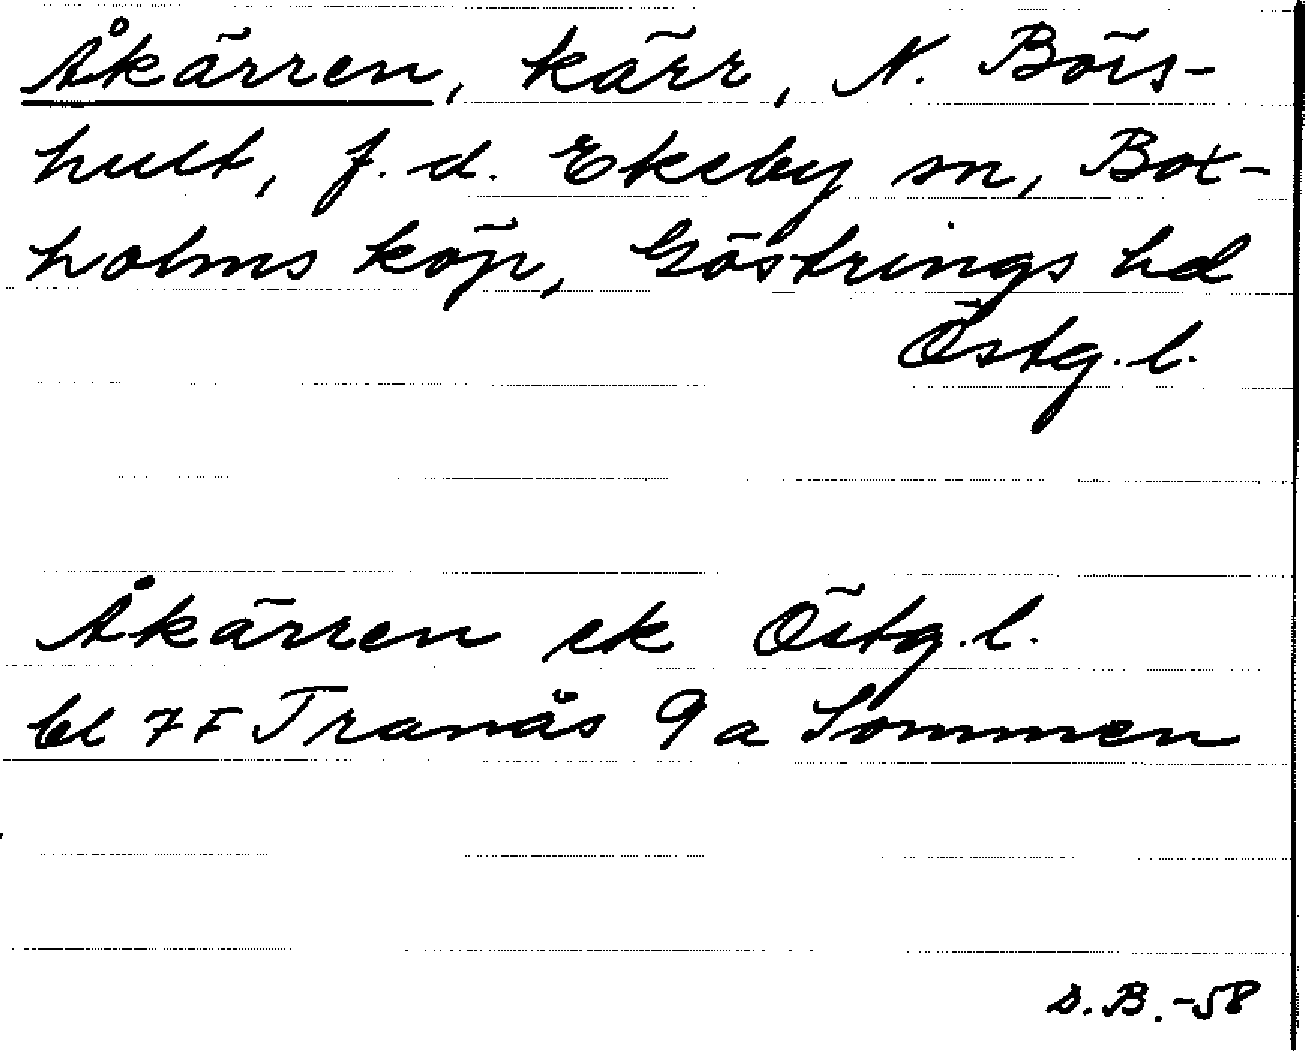 Åkärren, kärr, N. Börs-
hult, f.d. Ekeby sn, Box-
holms köp, Göstrings hd
Östg.l.
Åkärren ek Östg.l.
bl 7F Tranås 9a Sommen
S.B.-58